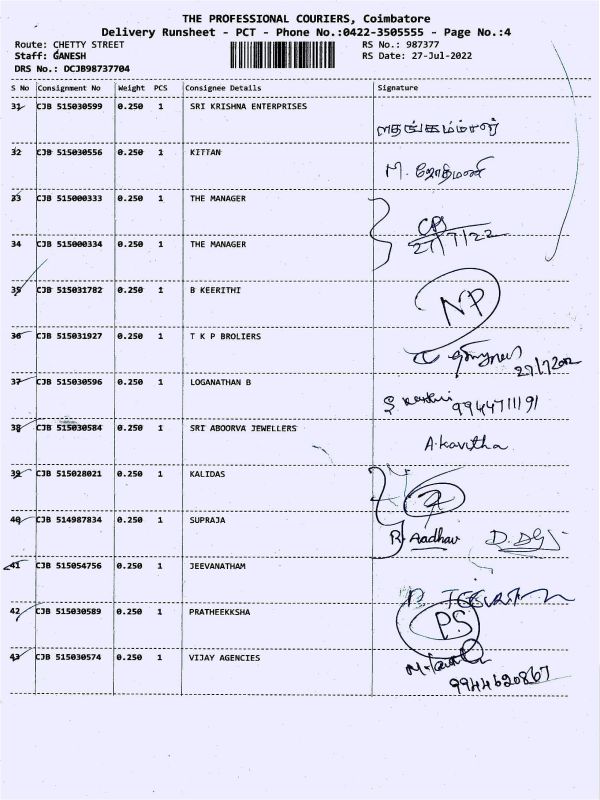 THE PROFESSIONAL COURIERS, Coimbatore
Delivery Runsheet - PCT - Phone No.:0422-3505555 - Page No.:4
Route: CHETTY STREET RS No.: 987377
Staff: GANESH RS Date: 27-Jul-2022
DRS No.: DCJB98737704
S No Consignment No Weight PCS Consignee Details Signature
31 CJB 515030599 0.250 1 SRI KRISHNA ENTERPRISES
32 CJB 515030556 0.250 1 KITTAN
M. ஜோதிமணி
33 CJB 515000333 0.250 1 THE MANAGER
27/7/22
34 CJB 515000334 0.250 1 THE MANAGER
35 CJB 515031782 0.250 1 B KEERITHI
NP
36 CJB 515031927 0.250 1 T K P BROLIERS
37 CJB 515030596 0.250 1 LOGANATHAN B
9944711191
38 CJB 515030584 0.250 1 SRI ABOORVA JEWELLERS
A. Kavitha
39 CJB 515028021 0.250 1 KALIDAS
40 CJB 514987834 0.250 1 SUPRAJA
R. Aadhav
41 CJB 515054756 0.250 1 JEEVANATHAM
42 CJB 515030589 0.250 1 PRATHEEKKSHA
PS
43 CJB 515030574 0.250 1 VIJAY AGENCIES
9944620867